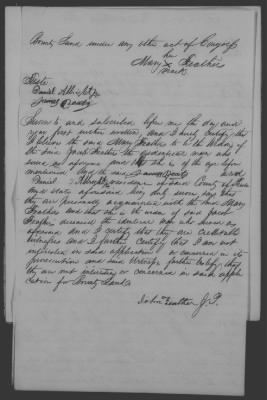 Bounty Land under any other act of Congress
her
Mary X Feather
mark
Attest
Daniel Albright
James
Sworn to and subscribed before me the day and
year first written and I hereby certify that
I believe the said Mary Feather to be the Widow of
the said Jacob Feather the identical man who
served as aforesaid and that she is of the age before
mentioned And the said
Daniel Albright residence of said County of
and state aforesaid being duly sworn says that
they are personally acquainted with the said Mary
Feather And that she is the widow of said Jacob
Feather deceased the identical man who served as
aforesaid And I certify that they are creditable
witnesses and I further certify that I am not
interested in said application or concerned in its
prosecution and said Witnesses further testify that
they are not interested or concerned in said appli
cation for Bounty Land
Feather J.P.